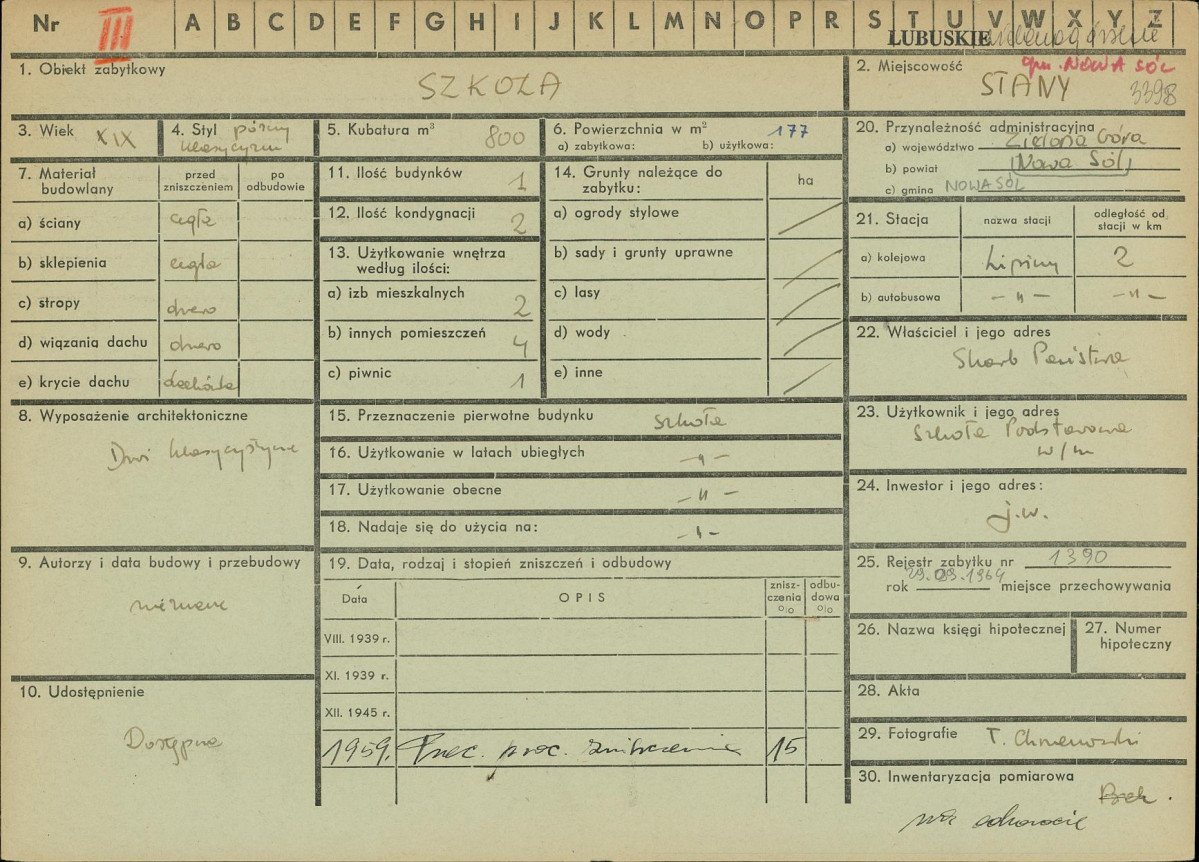 Nr III A B C D E F G H I J K L M N O P R S T U V W X Y Z
LUBUSKIE
1. Obiekt zabytkowy
SZKOŁA
2. Miejscowość gm. NOWA SÓL
STANY 3398
3. Wiek XIX
4. Styl późny
klasycyzm
5. Kubatura m³ 800
6. Powierzchnia w m² 177
a) zabytkowa: b) użytkowa:
20. Przynależność administracyjna
a) województwo Zielona Góra
b) powiat Nowa Sól
c) gmina NOWA SÓL
7. Materiał budowlany
przed zniszczeniem
po odbudowie
a) ściany cegła
b) sklepienia cegła
c) stropy drewo
d) wiązania dachu drewo
e) krycie dachu dachówka
11. Ilość budynków 1
12. Ilość kondygnacji 2
13. Użytkowanie wnętrza
według ilości:
a) izb mieszkalnych 2
b) innych pomieszczeń 4
c) piwnic 1
14. Grunty należące do
zabytku:
ha
a) ogrody stylowe
b) sady i grunty uprawne
c) lasy
d) wody
e) inne
21. Stacja
nazwa stacji
odległość od
stacji w km
a) kolejowa Lipiny 2
b) autobusowa –"– –"–
22. Właściciel i jego adres
Skarb Państwa
8. Wyposażenie architektoniczne
Drzwi klasycystyczne
15. Przeznaczenie pierwotne budynku szkoła
16. Użytkowanie w latach ubiegłych –"–
17. Użytkowanie obecne –"–
18. Nadaje się do użycia na: –"–
23. Użytkownik i jego adres
Szkoła Podstawowa
w/m
24. Inwestor i jego adres:
j.w.
9. Autorzy i data budowy i przebudowy
nieznane
19. Data, rodzaj i stopień zniszczeń i odbudowy
Data
OPIS
znisz-
czenia
%
odbu-
dowa
%
VIII. 1939 r.
XI. 1939 r.
XII. 1945 r.
1959. Przec. proc. zniszczenia 15
25. Rejestr zabytku nr 1390
rok 29.09.1964 miejsce przechowywania
26. Nazwa księgi hipotecznej
27. Numer
hipoteczny
28. Akta
10. Udostępnienie
Dostępna
29. Fotografie T. Chmielewski
30. Inwentaryzacja pomiarowa
Brak.
na odwrocie